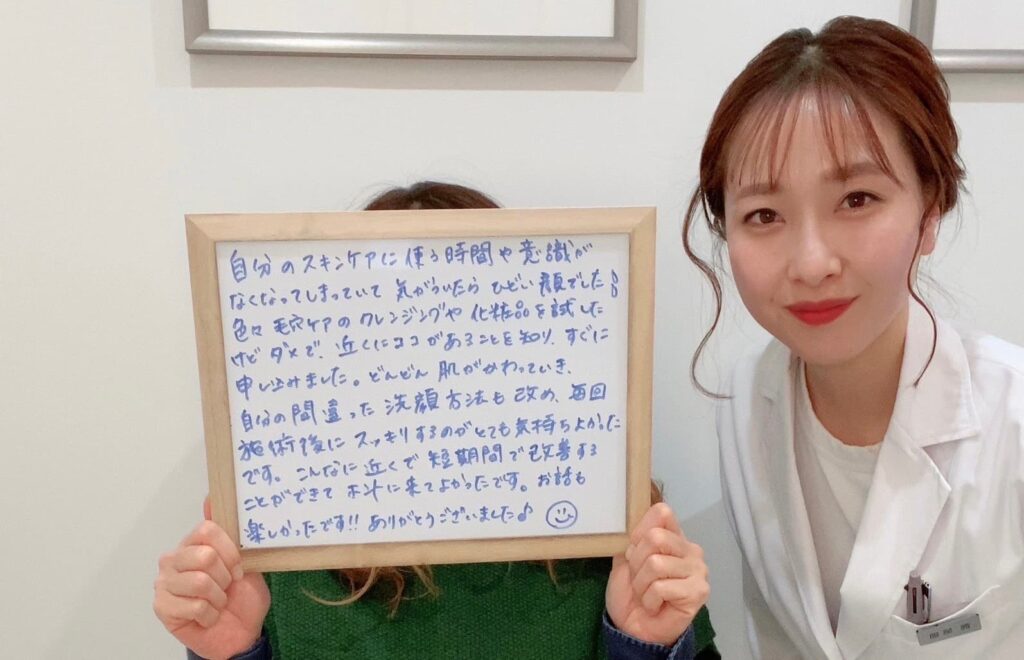 自分のスキンケアに使う時間や意識が
なくなってしまっていて 気がついたら ひどい顔でした
色々毛穴ケアのクレンジングや化粧品を試した
けどダメで、近くにココがあることを知り、すぐに
申し込みました。どんどん肌がかわっていき、
自分の間違った洗顔方法も改め、毎回
施術後にスッキリするのがとても気持ちよかった
です。こんなに近くで短期間で改善する
ことができてホントに来てよかったです。お話も
楽しかったです!! ありがとうございました♪